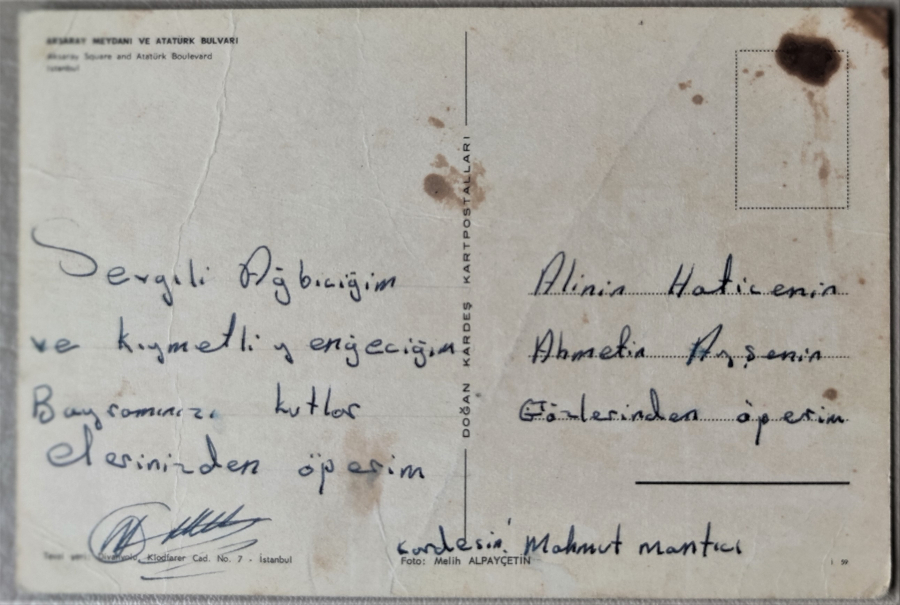 AKSARAY MEYDANI VE ATATÜRK BULVARI
Aksaray Square and Atatürk Boulevard
İstanbul
Sevgili Ağbiciğim
ve kıymetli yengeciğim
Bayramınızı kutlar
elerinizden öperim
Alinin Haticenin
Ahmetin Ayşenin
Gözlerinden öperim
kardeşin Mahmut mantıcı
DOĞAN KARDEŞ KARTPOSTALLARI
Tevzi yeri: Divanyolu, Klodfarer Cad. No. 7 - İstanbul
Foto: Melih ALPAYÇETİN
İ 59